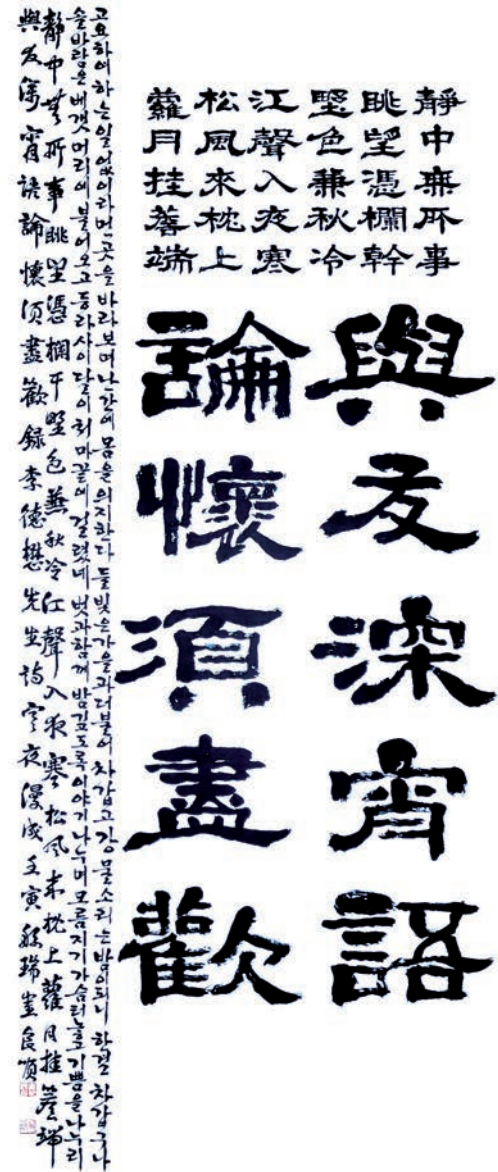 靜中無所事
眺望憑欄幹
野色兼秋冷
江聲入夜寒
松風來枕上
蘿月挂簷端
與友深宵語
論懷須盡歡
고요하여 하는일 없이라 먼곳을 바라보며 난간에 몸을 의지한다 들빛은 가을과 더불어 차갑고 강물소리는 밤이되니 한결 차갑구나
솔바람은 베갯머리에 불어오고 등라사이 달이 처마끝에 걸렸네 벗과함께 밤깊도록 이야기 나누며 모름지기 가슴터놓고 기쁨을 나누리
靜中無所事眺望憑欄干野色兼秋冷江聲入夜寒松風來枕上蘿月挂簷端
與友深宵語論懷須盡歡錄李德懋先生詩夜漫成壬寅瑞順